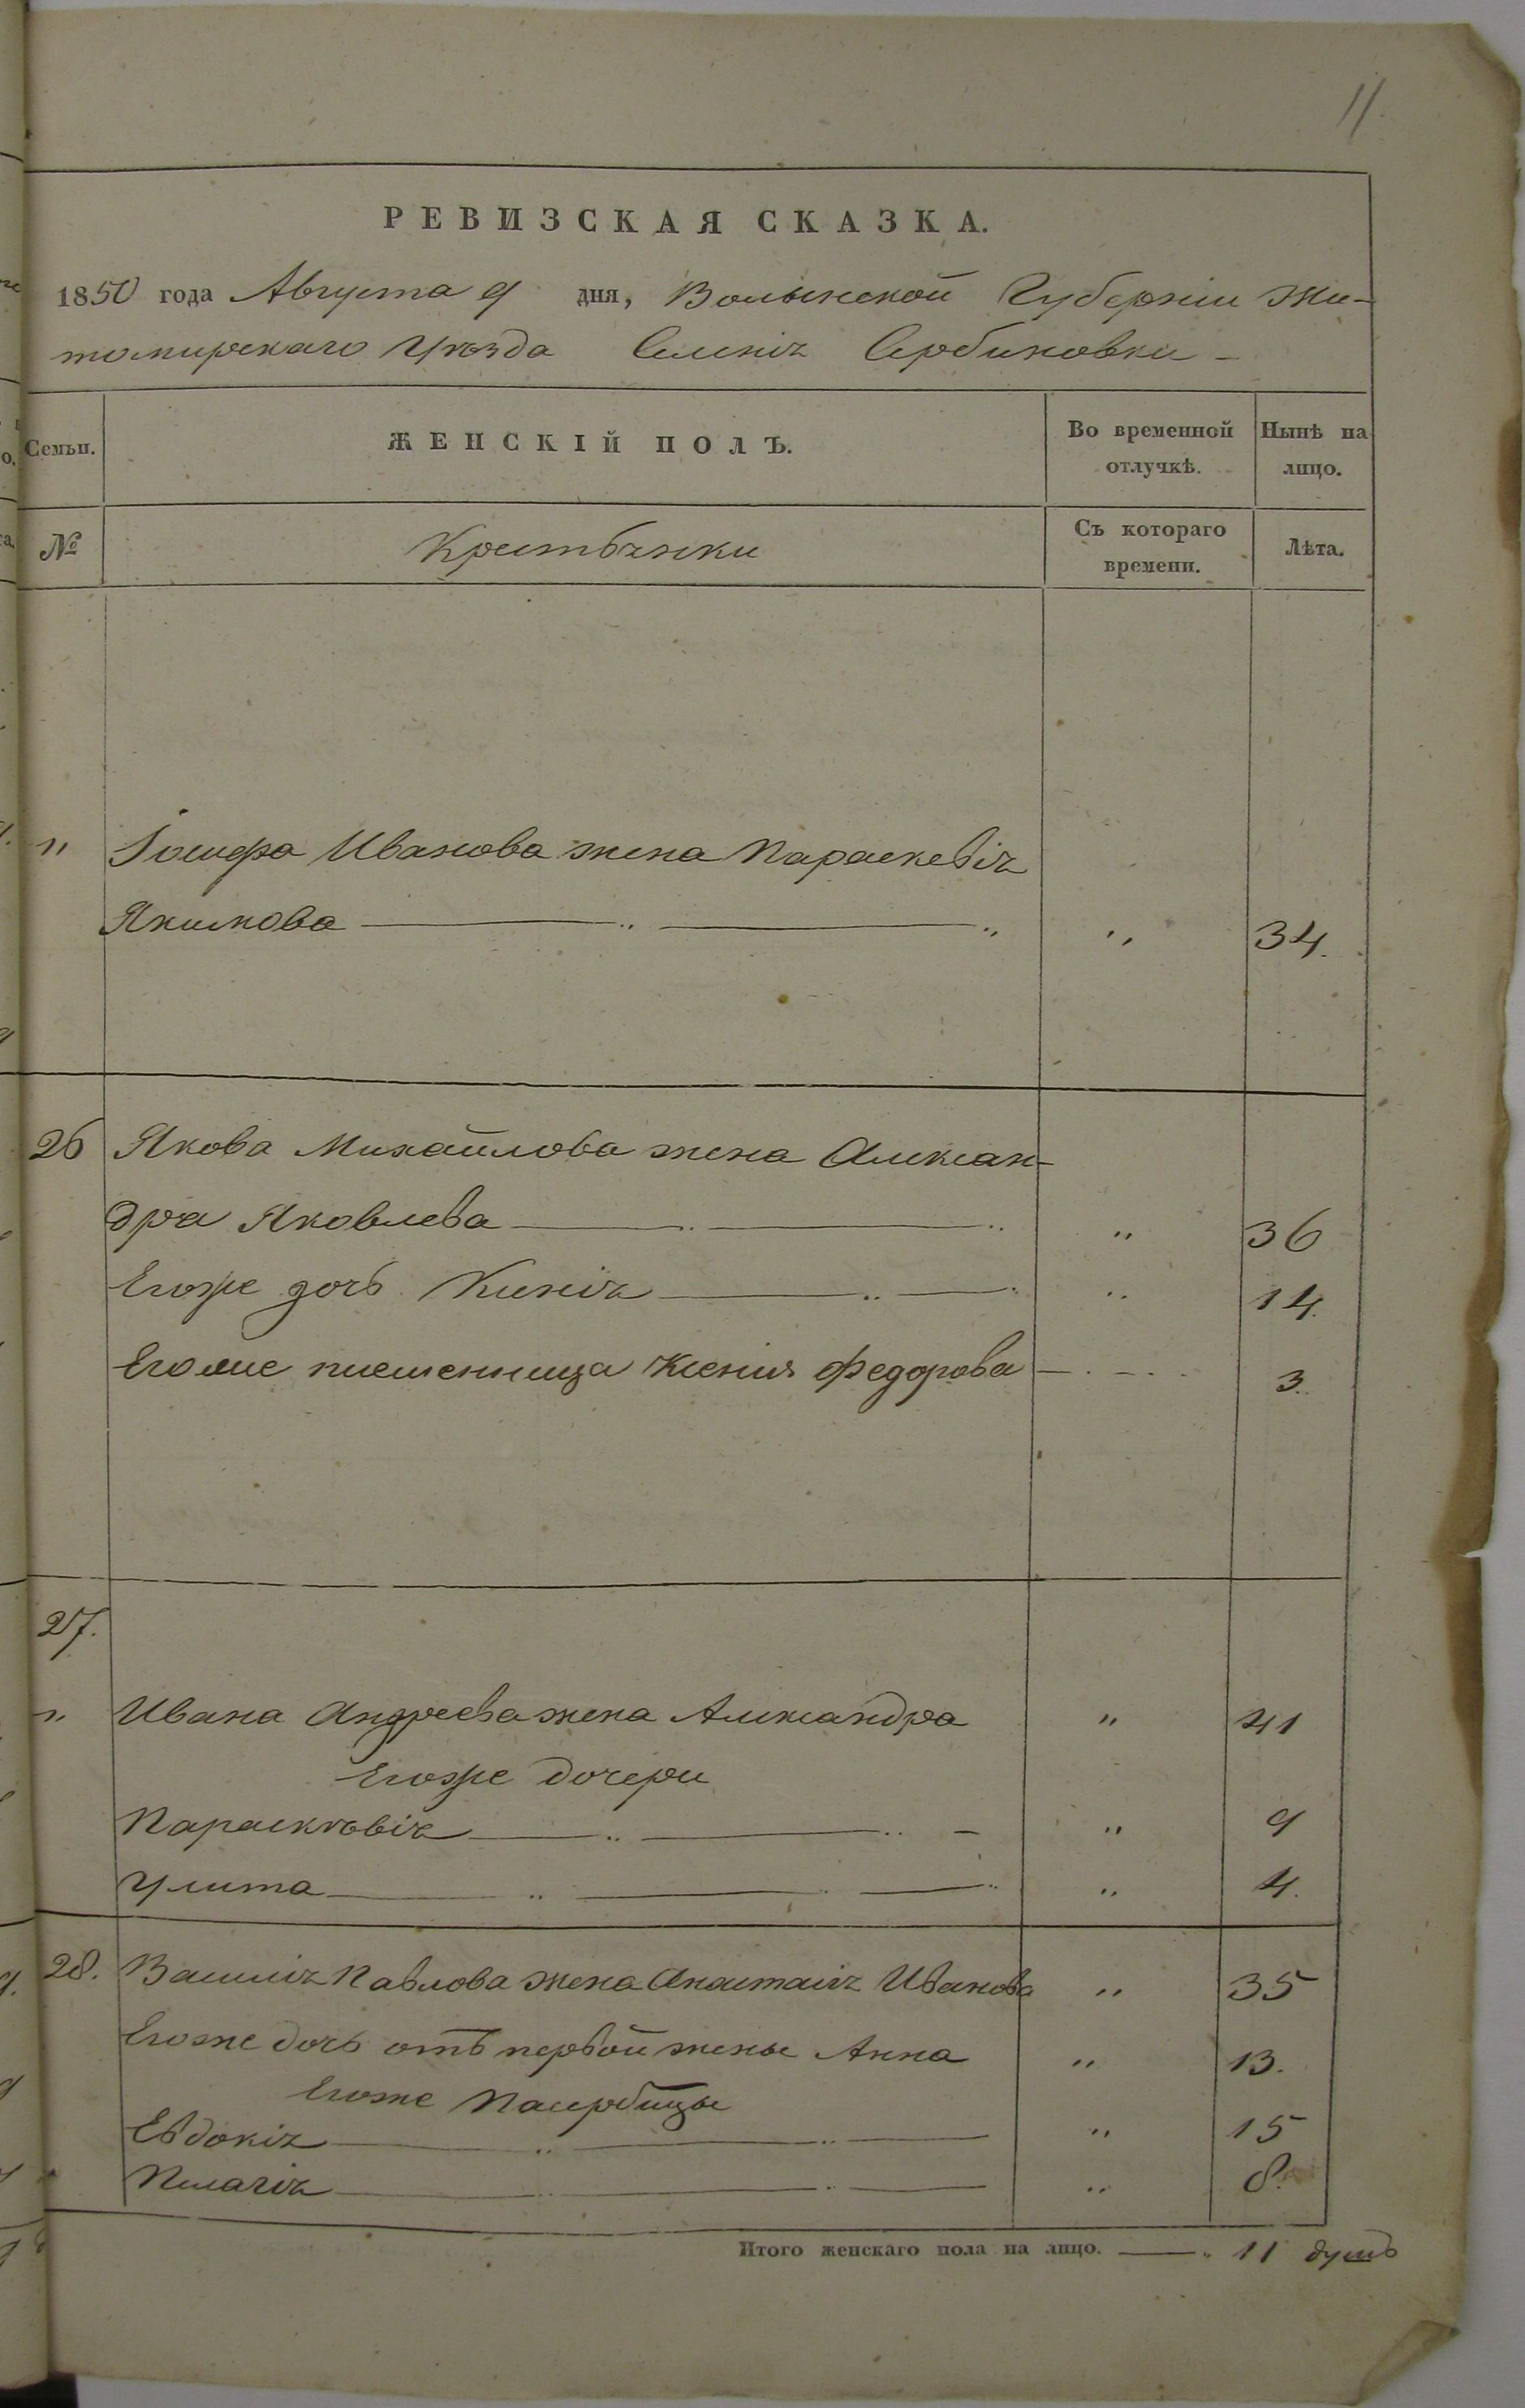 11.
РЕВИЗСКАЯ СКАЗКА.
1850 года Августа 9 дня, Волынской Губерніи Жи-
томирскаго Уѣзда Селенія Сербиновки -
Семьи. ЖЕНСКІЙ ПОЛЪ. Во временной отлучкѣ. Нынѣ на лицо.
№ Крестьянки Съ котораго времени. Лѣта.
" Іосифа Иванова жена Параскевія
Якимова " " " 34.
26 Якова Михайлова жена Алексан-
дра Яковлева " " " 36
Егоже дочь Ксенія " " " 14.
Егоже племенница Ксенія Федорова 3.
27.
" Ивана Андреева жена Александра " 41
Егоже дочери
Параскѣвія " " " 9
Улита " " " 4.
28. Василія Павлова жена Анастасія Иванова " 35
Егоже дочь отъ первой жены Анна " 13.
Егоже Пасербицы
Евдокія " " " 15
Пелагія " " " 8.
Итого женскаго пола на лицо. " 11 душъ